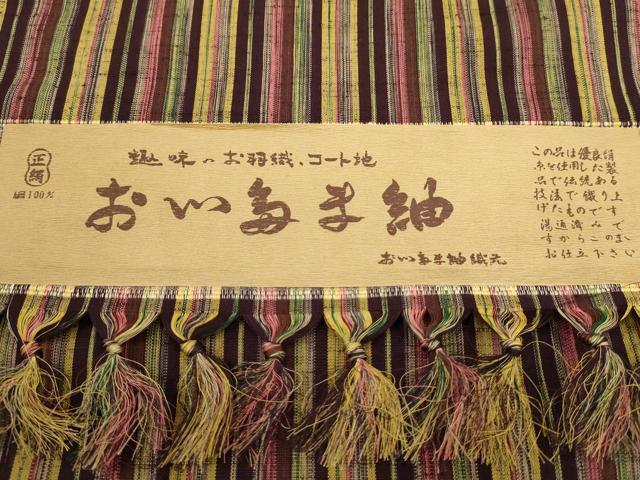 正絹
絹100%
趣味のお羽織、コート地
おいたま紬
おいたま紬織元
この品は優良絹
糸を使用した製
品で伝統ある
技法で織り上
げたものです
湯通済みで
すからこのまゝ
お仕立下さい